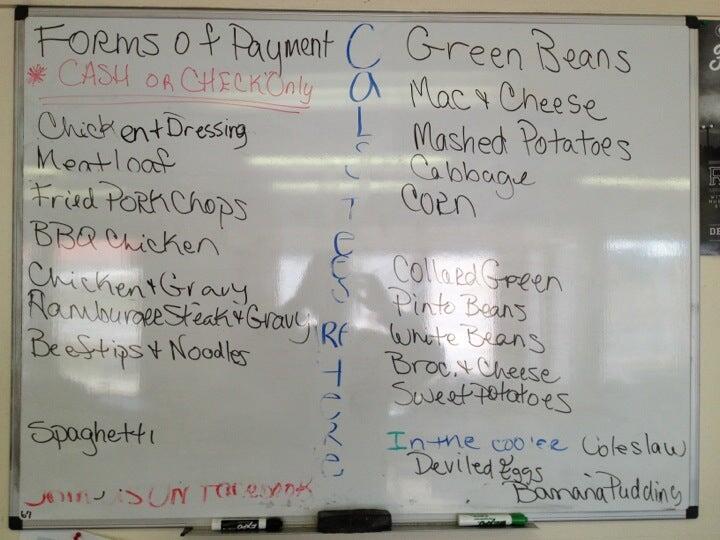 Forms of Payment
* CASH OR CHECK Only
Chicken + Dressing
Meatloaf
Fried PORK Chops
BBQ Chicken
Chicken + Gravy
Hamburger Steak + Gravy
Beeftips + Noodles
Spaghetti
Green Beans
Mac + Cheese
Mashed Potatoes
Cabbage
CORN
Collard Green
Pinto Beans
White Beans
Broc. + Cheese
Sweet Potatoes
In the cooler Coleslaw
Deviled Eggs
Banana Pudding
EXPO